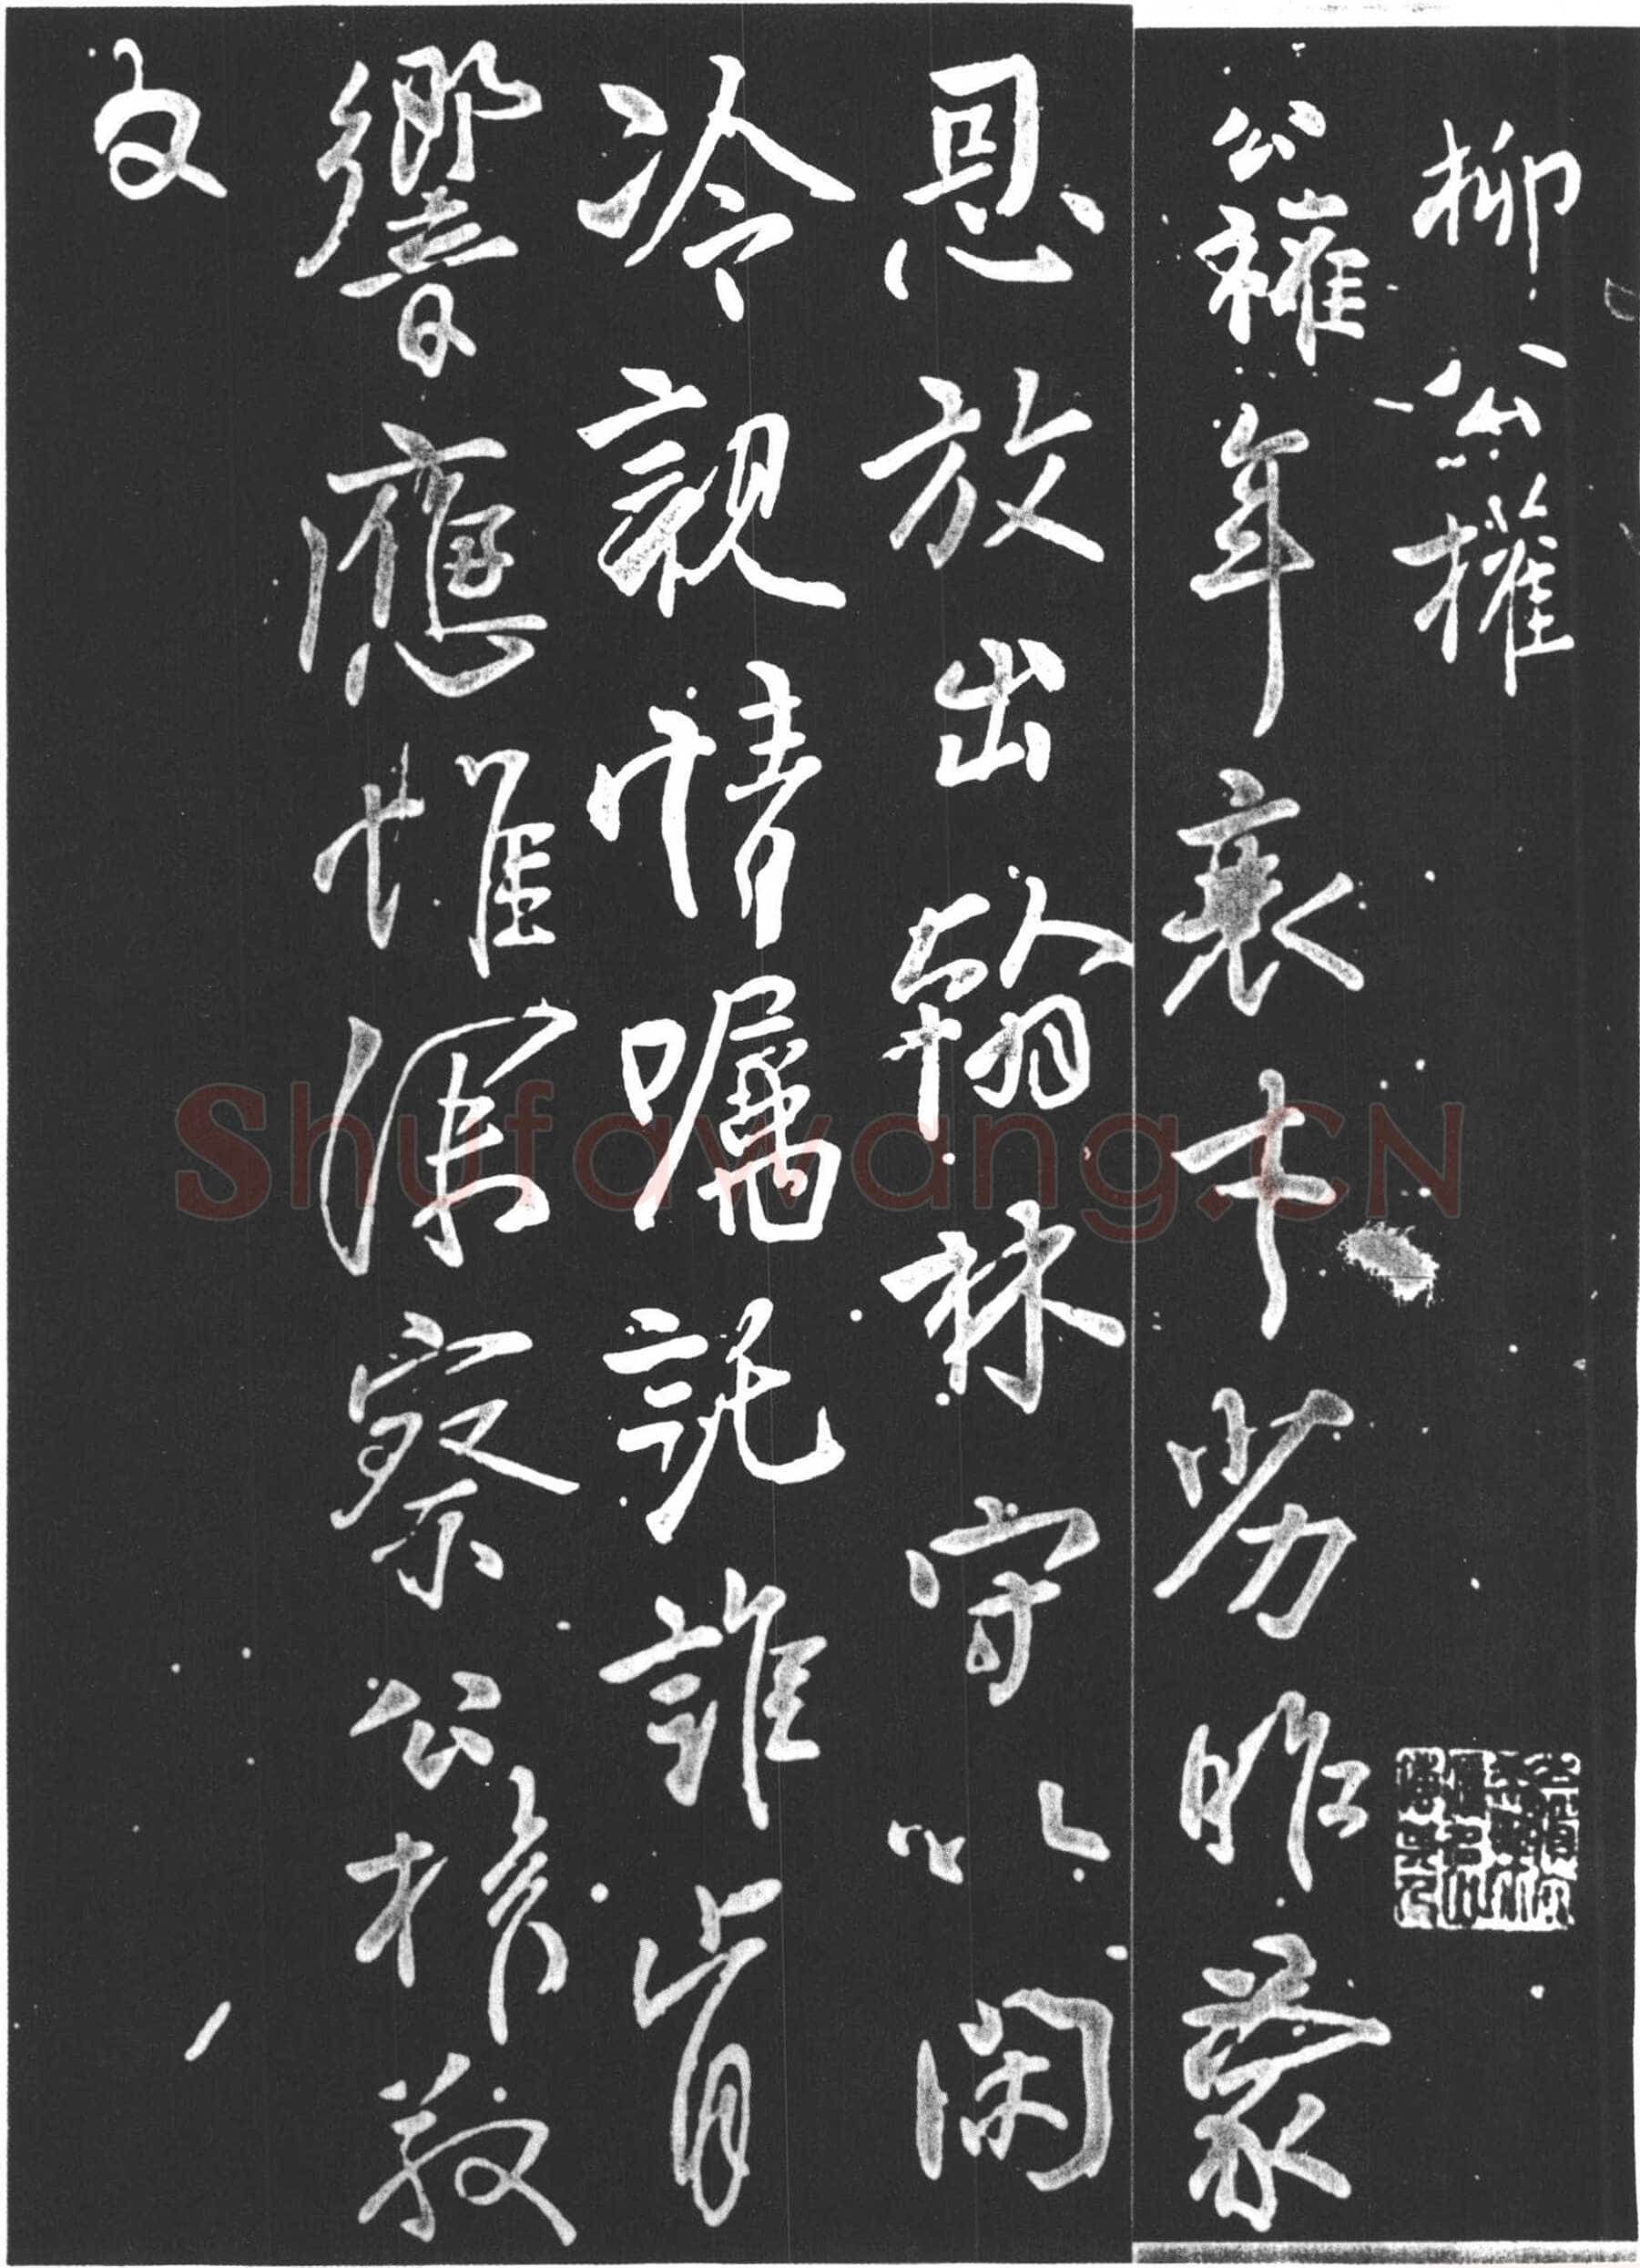 柳公權
公權年衰才劣昨蒙
恩放出翰林守以閑
冷親情囑託誰肯
響應惟深察公權敬
白
Shufawang.CN